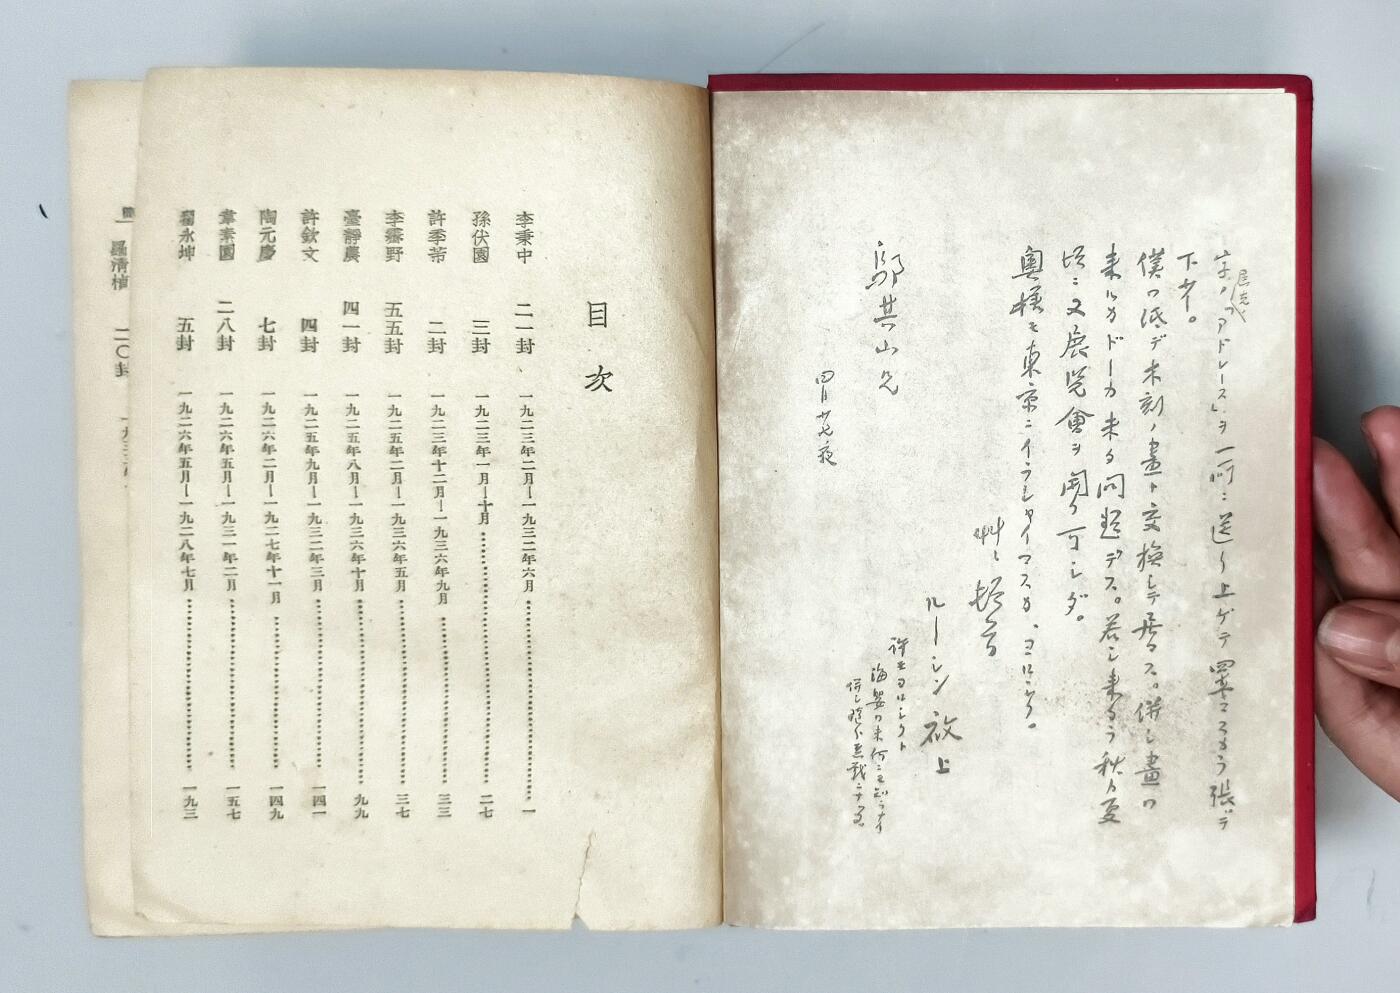 字ノ「アドレース」ヲ一所ニ送リ上ゲテ置マスカラ張ッテ
下サイ。
僕ハ紙デ木刻ノ畫ト交換シテ居マス。併シ畫ハ
来ルカドーカ未ダ問題デス。若シ来タラ秋カ夏
頃ニ又展覧會ヲ開ク可シダ。
奥様モ東京ニイラシャイマスカ、ヨロシク。
艸々頓首
ルーシン 啟上
許モヨロシクト
海嬰ハ未何ニモ知ラナイ
併シ随分悪戯ニナッタ
鄔其山兄
四月廿七夜
目次
李秉中 二一封 一九二三年二月—一九三二年六月 一
孫伏園 三封 一九二三年一月—十月 二七
許季茀 二封 一九二三年十二月—一九三六年九月 三三
李霽野 五五封 一九二五年二月—一九三六年五月 三七
臺靜農 四一封 一九二五年八月—一九三六年十月 九九
許欽文 四封 一九二五年九月—一九三二年三月 一四一
陶元慶 七封 一九二六年二月—一九二七年十一月 一四九
韋素園 二八封 一九二六年五月—一九三一年二月 一五七
翟永坤 五封 一九二六年五月—一九二八年七月 一九三
羅清楨 二〇封